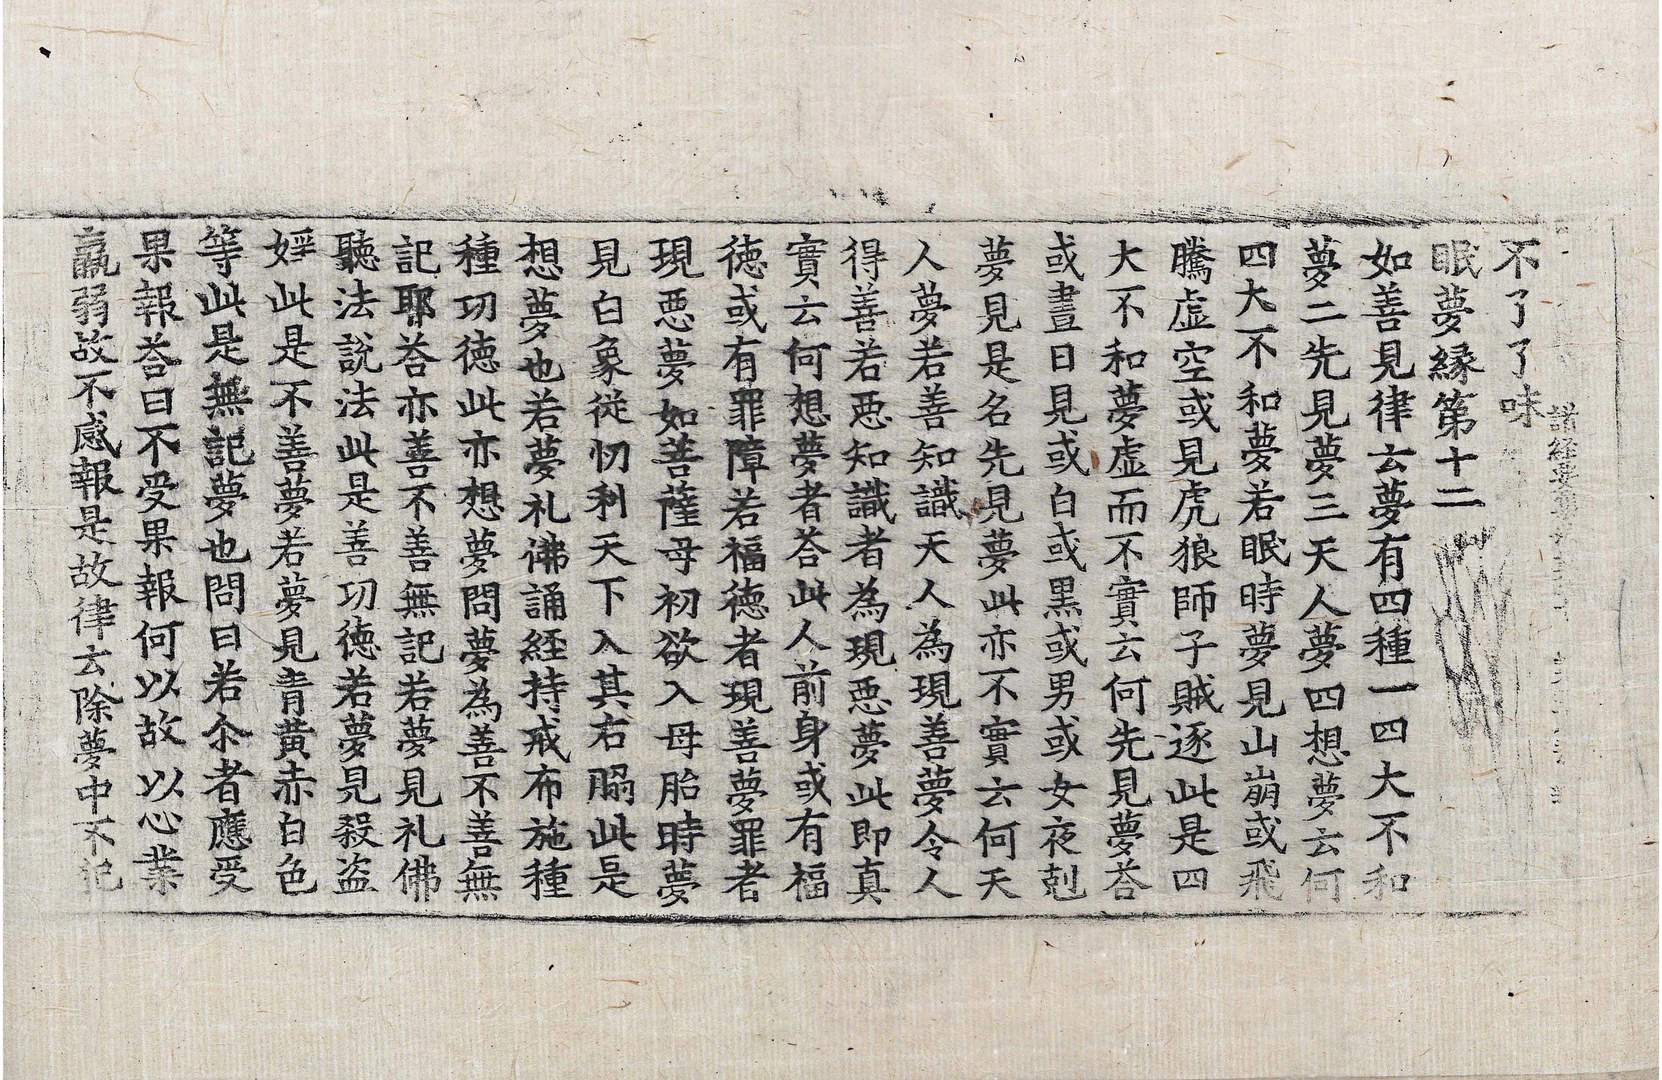 諸経要集
不了了味
眠夢縁第十二
如善見律云夢有四種一四大不和
夢二先見夢三天人夢四想夢云何
四大不和夢若眠時夢見山崩或飛
騰虛空或見虎狼師子賊逐此是四
大不和夢虛而不實云何先見夢荅
或晝日見或白或黒或男或女夜剋
夢見是名先見夢此亦不實云何天
人夢若善知識天人為現善夢令人
得善若惡知識者為現惡夢此即真
實云何想夢者荅此人前身或有福
徳或有罪障若福徳者現善夢罪者
現惡夢如菩薩母初欲入母胎時夢
見白象從忉利天下入其右脇此是
想夢也若夢礼佛誦経持戒布施種
種功徳此亦想夢問夢為善不善無
記耶荅亦善不善無記若夢見礼佛
聽法說法此是善功徳若夢見殺盜
婬此是不善夢若夢見青黃赤白色
等此是無記夢也問曰若尒者應受
果報荅曰不受果報何以故以心業
羸弱故不感報是故律云除夢中不犯